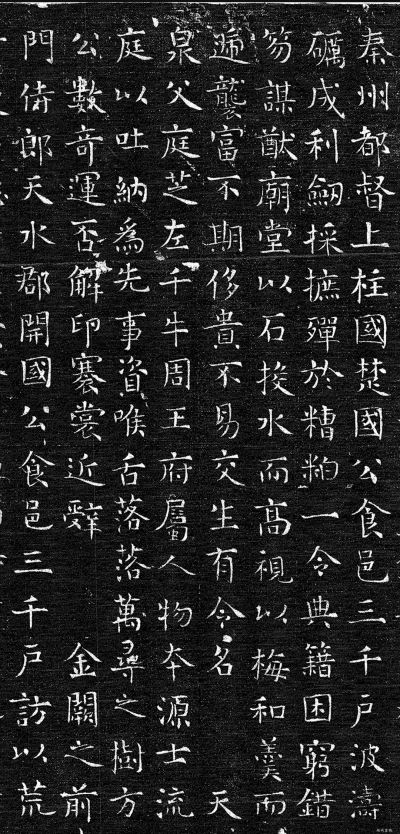 秦州都督上柱國楚國公食邑三千戶波濤
礪成利劒採摭殫於糟粕一令典籍困窮錯
笏謀猷廟堂以石投水而髙視以梅和羹而
遞襲富不期侈貴不易交生有令名 天
泉父庭芝左千牛周王府屬人物夲源士流
庭以吐納爲先事資喉舌落落萬尋之樹方
公數奇運否解印褰裳近辭 金闕之前
門侍郎天水郡開國公食邑三千戶訪以荒